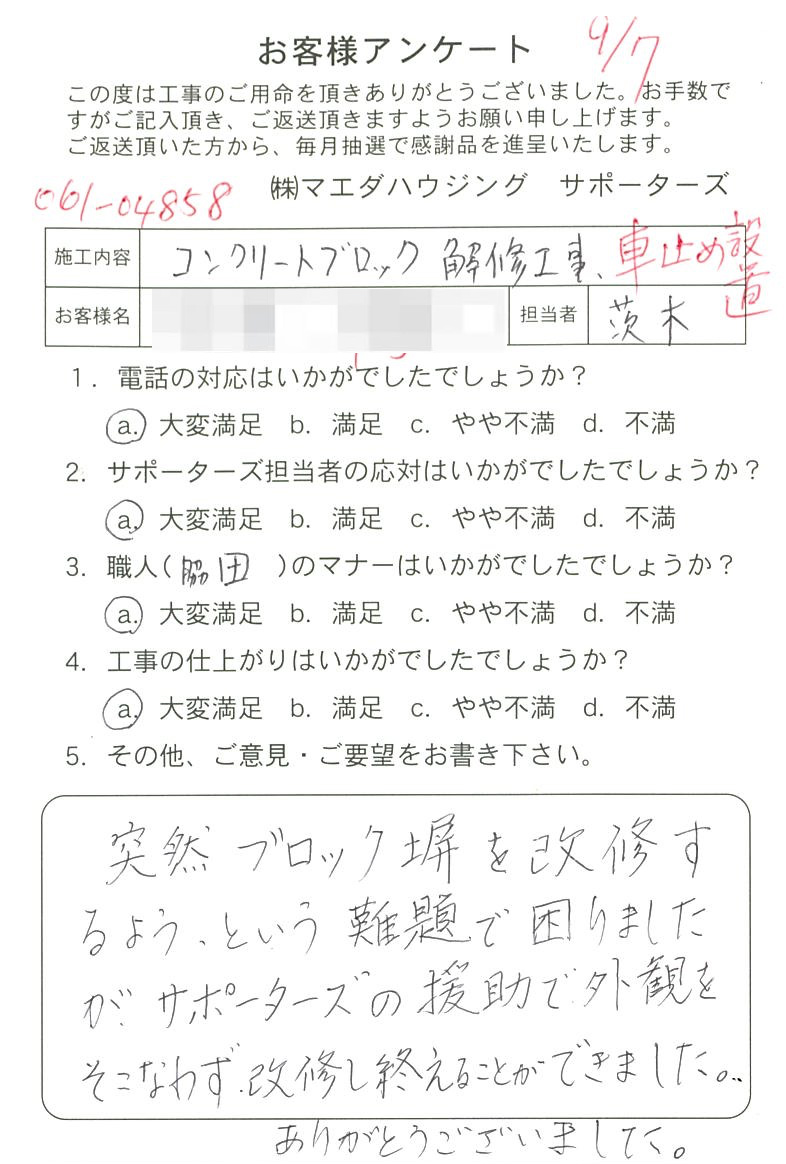 お客様アンケート
4/7
この度は工事のご用命を頂きありがとうございました。お手数で
すがご記入頂き、ご返送頂きますようお願い申し上げます。
ご返送頂いた方から、毎月抽選で感謝品を進呈いたします。
061-04858
㈱マエダハウジング サポーターズ
施工内容 コンクリートブロック 解修工事、車止め設置
お客様名 担当者 茨木
1. 電話の対応はいかがでしたでしょうか？
a. 大変満足 b. 満足 c. やや不満 d. 不満
2. サポーターズ担当者の応対はいかがでしたでしょうか？
a. 大変満足 b. 満足 c. やや不満 d. 不満
3. 職人(脇田)のマナーはいかがでしたでしょうか？
a. 大変満足 b. 満足 c. やや不満 d. 不満
4. 工事の仕上がりはいかがでしたでしょうか？
a. 大変満足 b. 満足 c. やや不満 d. 不満
5. その他、ご意見・ご要望をお書き下さい。
突然ブロック塀を改修す
るよう、という難題で困りました
が、サポーターズの援助で外観を
そこなわず、改修し終えることができました。
ありがとうございました。